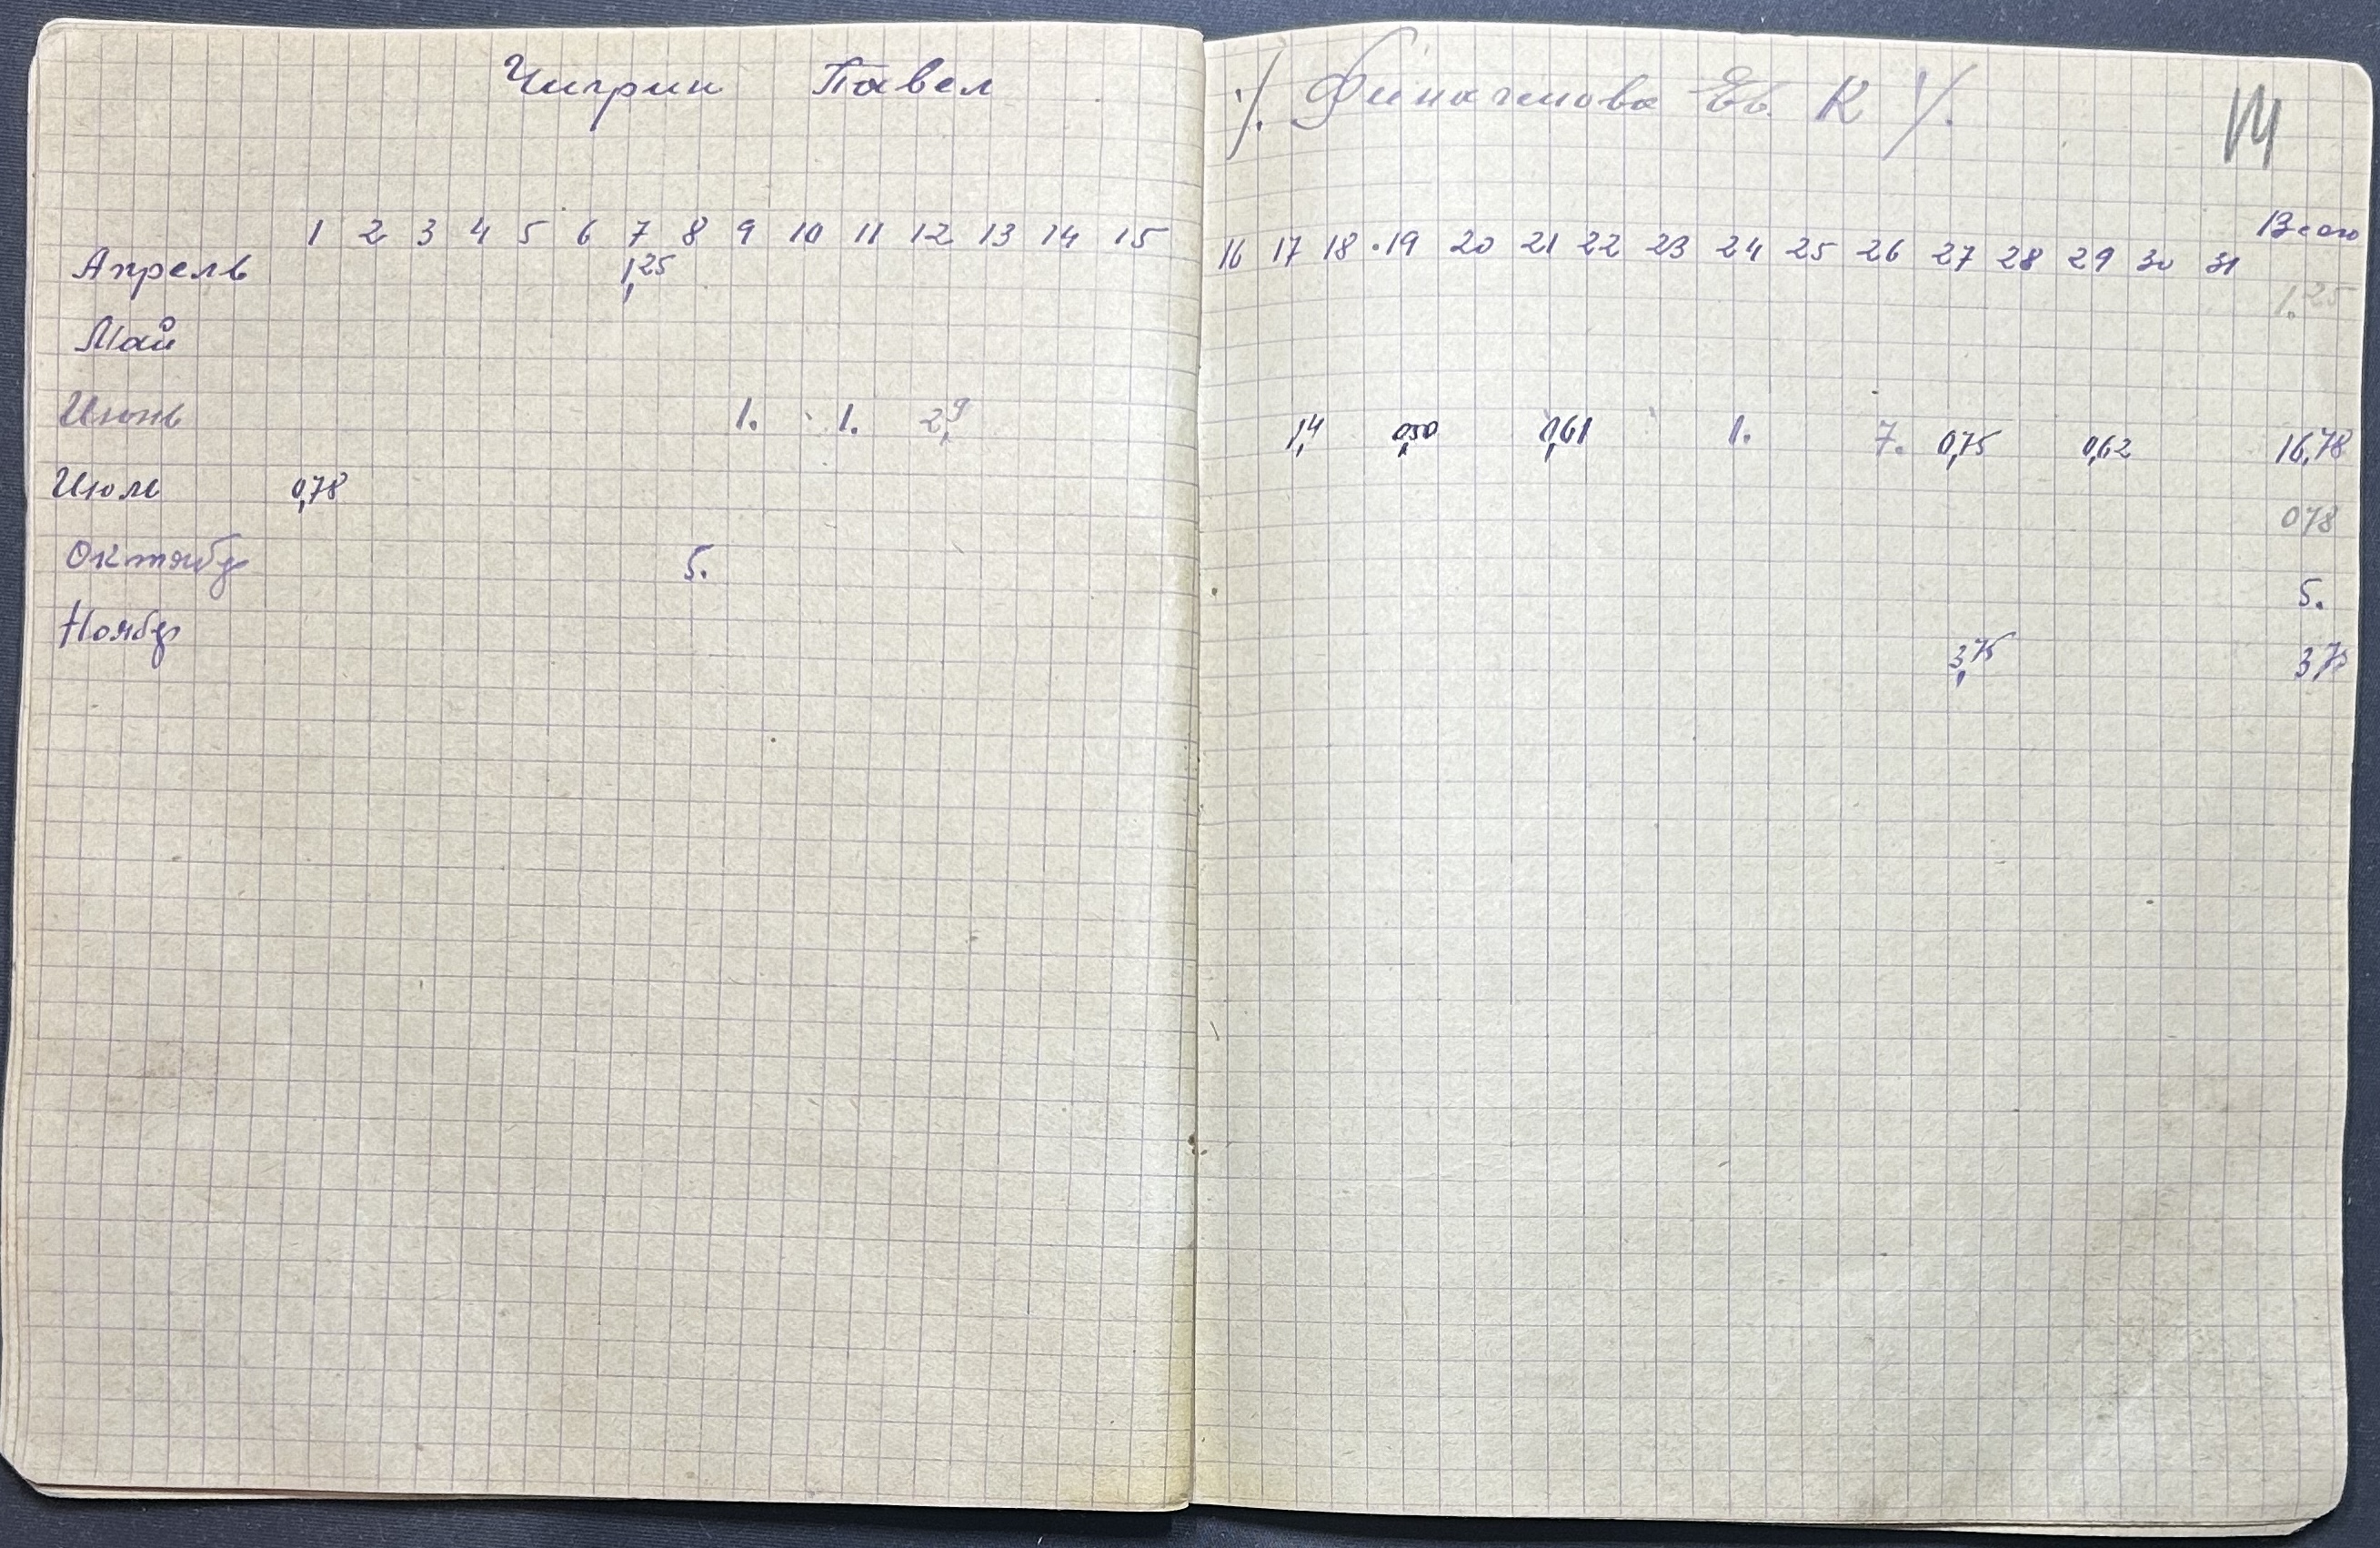 Чигрин Павел
1 2 3 4 5 6 7 8 9 10 11 12 13 14 15
Апрель 1,25
Май
Июнь 1. 1. 2,9
Июль 0,78
Октябр 5.
Ноябр
Ев. К
16 17 18 19 20 21 22 23 24 25 26 27 28 29 30 31 Всего
1.25
1,4 0,50 0,61 1. 7. 0,75 0,62 16,78
078
5.
3,75 375